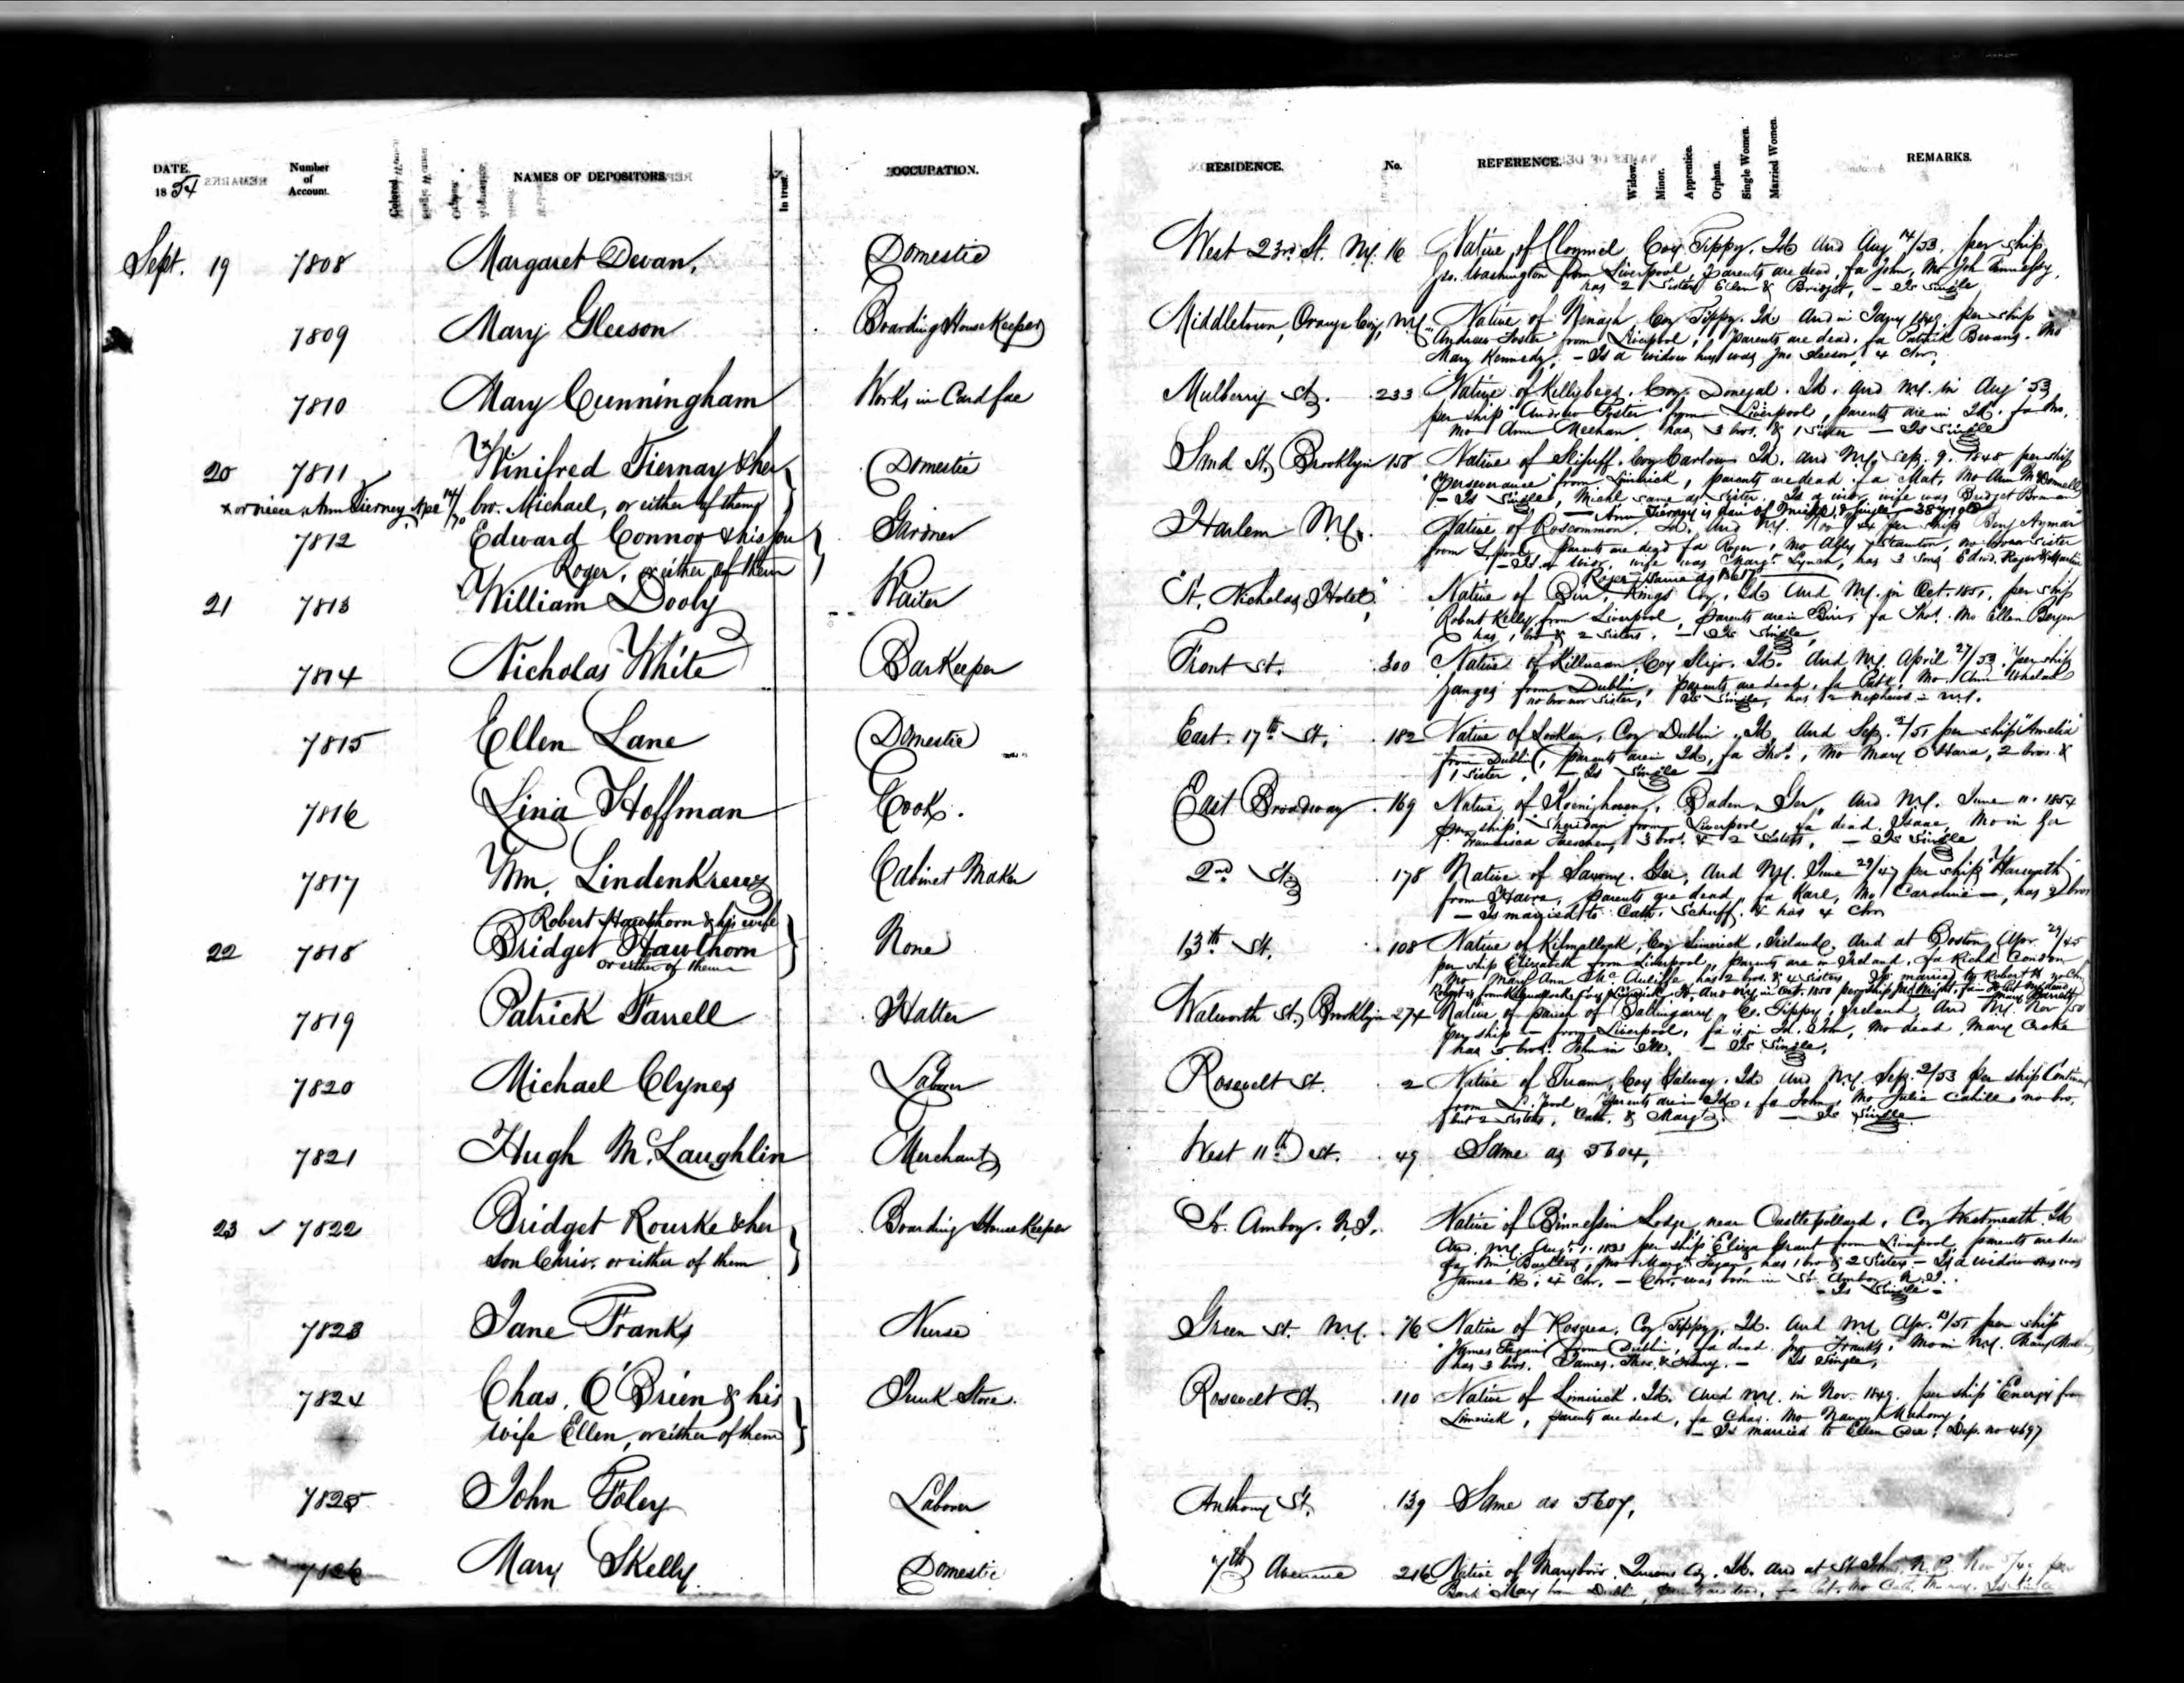 DATE.
1854
Number of Account.
Colored.
NAMES OF DEPOSITORS.
In trust.
OCCUPATION.
RESIDENCE.
No.
REFERENCE.
Widow.
Minor.
Apprentice.
Orphan.
Single Women.
Married Women.
REMARKS.
Sept. 19 7808 Margaret Devan, Domestic West 23rd St. N.Y. 16 Native of Clonmel Coy Tippy. Id Arrd Aug 14/53, per ship
Geo. Washington from Liverpool, parents are dead, fa John, Mo Joh Fennessy,
has 2 sisters Ellen & Bridget, – Is single
7809 Mary Gleeson Boarding House Keeper Middletown, Orange Coy, N.Y. Native of Nenagh Coy Tippy. Id Arrd in Jany 1849 per ship
Andrew Foster from Liverpool, parents are dead, fa Patrick Mo
Mary Kennedy, – Is a widow hus was Jno Gleeson, 4 chn,
7810 Mary Cunningham Works in Card fac Mulberry St. 233 Native of Kellybegs, Coy Donegal. Id. Arrd N.Y. in Aug 53
per ship Andrew Foster from Liverpool, parents are in Id. fa
mo Ann Meehan, has 3 bros. & 1 sister – Is single
20 7811 x Winifred Tiernay & her Domestic Brooklyn 158 Native of Coy Carlow Id. Arrd N.Y. Sep. 9. 1848 per ship
x or niece, Ann Tierney Apl 14/70 bro. Michael, or either of them
Perseverance from Limerick, parents are dead fa Mat, Mo Ann McDonnell
– Is single, Michl same as sister. Is a widr wife was Bridget
– Ann Tierney is dau of & single – 38 yrs old
7812 Edward Connor & his son Gardner Harlem N.Y. Native of Roscommon Id, Arrd N.Y. Nov 44 per ship Benj Aymar
Roger, or either of them
from L.pool, parents are dead fa Roger, Mo Abby Staunton, no bro or sister
– Is a widr, wife was Margt Lynch, has 3 sons Edwd, Roger & Martin
21 7813 William Dooly Waiter St. Nicholas Hotel, Native of Birr, Kings Coy, Id Arrd N.Y. in Oct. 1851, per ship
Robert Kelly from Liverpool, parents are in Birr, fa Thos. Mo Ellen Bergen
has 1 bro & 2 sisters. – Is single,
7814 Nicholas White BarKeeper Front St. 300 Native of Killucan, Coy Sligo. Id. Arrd N.Y. April 27/53. per ship
Ganges from Dublin, parents are dead, fa Patk, Mo. Ann Whelan
no bro nor sister, Is single, has 2 nephews in N.Y.
7815 Ellen Lane Domestic East 17th St. 182 Native of Lookan, Coy Dublin, Id, Arrd Sep. 2/51 per ship "Amelia"
from Dublin, parents are in Id, fa Thos., Mo Mary O'Hara, 2 bros. &
1 sister, – Is single –
7816 Lina Hoffman Cook. East Broadway 169 Native of Baden, Ger, Arrd N.Y. June 11. 1854
per ship Sheridan from Liverpool, fa dead Isaac, Mo in Ger
Francisca 3 bros. & 2 sisters, – Is single
7817 Wm. Lindenkreuz Cabinet Maker 2nd St. 178 Native of Ger, Arrd N.Y. June 29/47 per ship
from Havre, parents are dead, fa Karl, Mo Caroline –, has 2 bros
– Is married to Cath. Schuff, & has 4 chn
Robert Hawthorn & his wife
22 7818 Bridget Hawthorn None 13th St. 108 Native of Kilmallock, Coy Limerick, Ireland, Arrd at Boston, Apr. 29/45
or either of them
per ship Elizabeth from Liverpool, parents are in Ireland, fa Richd Condon
Mo Mary Ann McAuliffe has 2 bros. & 4 sisters Is married to Robert H no chn
7819 Patrick Farrell Hatter Walworth St, Brooklyn 274 Native of parish of Ballingarry, Co. Tippy, Ireland, Arrd N.Y. Nov 50
per ship – from Liverpool, fa is in Id. John, Mo dead Mary Croke
has 5 bros. John in Ill. – Is single,
7820 Michael Clynes Laborer Rosevelt St. 2 Native of Tuam, Coy Galway. Id. Arrd N.Y. Sep. 2/53 per ship
from L.Pool, parents are in Id, fa John, Mo Julia Cahill, no bro,
but 2 sisters, Cath. & Margt. – Is single
7821 Hugh McLaughlin Merchant West 11th St. 49 Same as 5604,
23 ✓ 7822 Bridget Rourke & her Boarding House Keeper So. Amboy. N.J. Native of Lodge near Castlepollard, Coy Westmeath Id
Son Chris. or either of them
Arrd. N.Y. Augt. 1. 1833 per ship Eliza Grant from Liverpool, parents are dead
fa Wm. Mo Margt. Fagan, has 1 bro & 2 sisters – Is a widow hus was
James R, 4 chn. – Chr. was born in So. Amboy N.J.
– Is single –
7823 Jane Franks Nurse Green St. N.Y. 76 Native of Roscrea, Coy Tippy, Id. Arrd N.Y. Apr. 13/51 per ship
James Fagan from Dublin, fa dead Jno Franks, Mo in N.Y.
has 3 bros. James, Thos. & Henry. – Is single,
7824 Chas. O'Brien & his Junk Store. Rosevelt St. 110 Native of Limerick, Id. Arrd N.Y. in Nov. 1849. per ship "Energy" from
wife Ellen, or either of them
Limerick, parents are dead, fa Chas. Mo Nancy Mahony,
– Is married to Ellen Dep. no 4697
7825 John Foley Laborer Anthony St. 139 Same as 5607,
7826 Mary Skelly Domestic 7th Avenue 216 Native of Marybro', Queens Coy, Id. Arrd at St John, N.B. Nov
Bark Mary from Dublin, fa Pat. Mo Cath. Is single